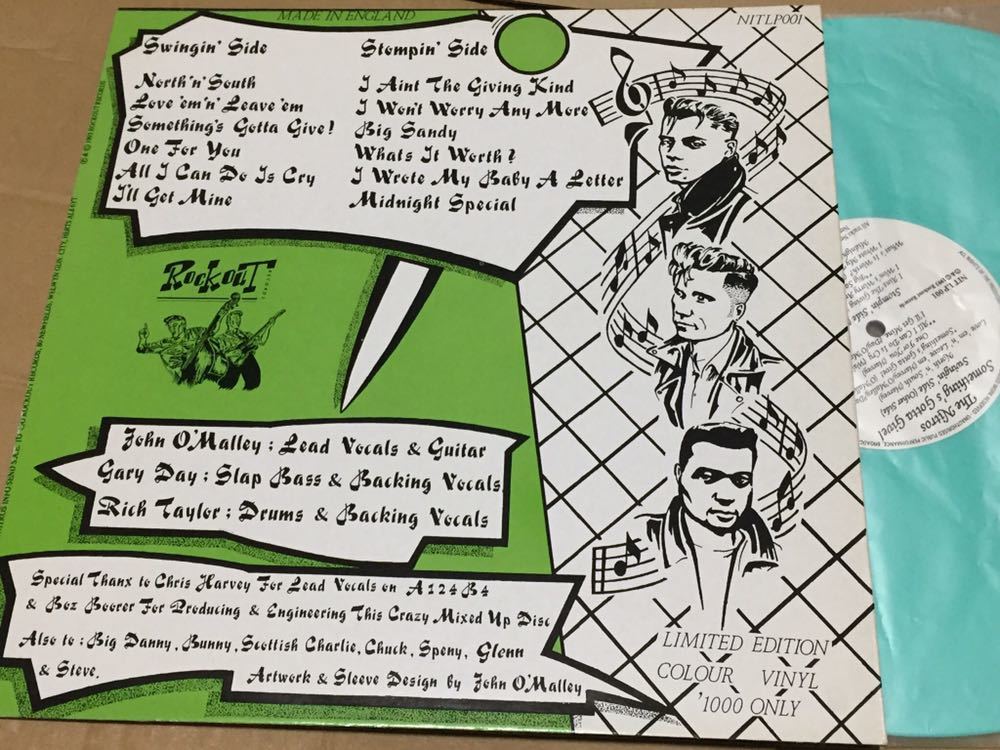 MADE IN ENGLAND
NITLP001
Swingin' Side
North 'n' South
Love 'em 'n' Leave 'em
Something's Gotta Give!
One For You
All I Can Do Is Cry
I'll Get Mine
Stompin' Side
I Aint The Giving Kind
I Won't Worry Any More
Big Sandy
Whats It Worth?
I Wrote My Baby A Letter
Midnight Special
RockouT
John O'Malley ; Lead Vocals & Guitar
Gary Day ; Slap Bass & Backing Vocals
Rich Taylor ; Drums & Backing Vocals
Special Thanx to Chris Harvey For Lead Vocals on A124 B4
& Boz Boorer For Producing & Engineering This Crazy Mixed Up Disc
Also to : Big Danny, Bunny, Scottish Charlie, Chuck, Speny, Glenn
& Steve.
Artwork & Sleeve Design by John O'Malley
LIMITED EDITION
COLOUR VINYL
'1000 ONLY
The Nitros
Something's Gotta Give!
Swingin' Side (Other Side)
Stompin' Side
NIT LP 001